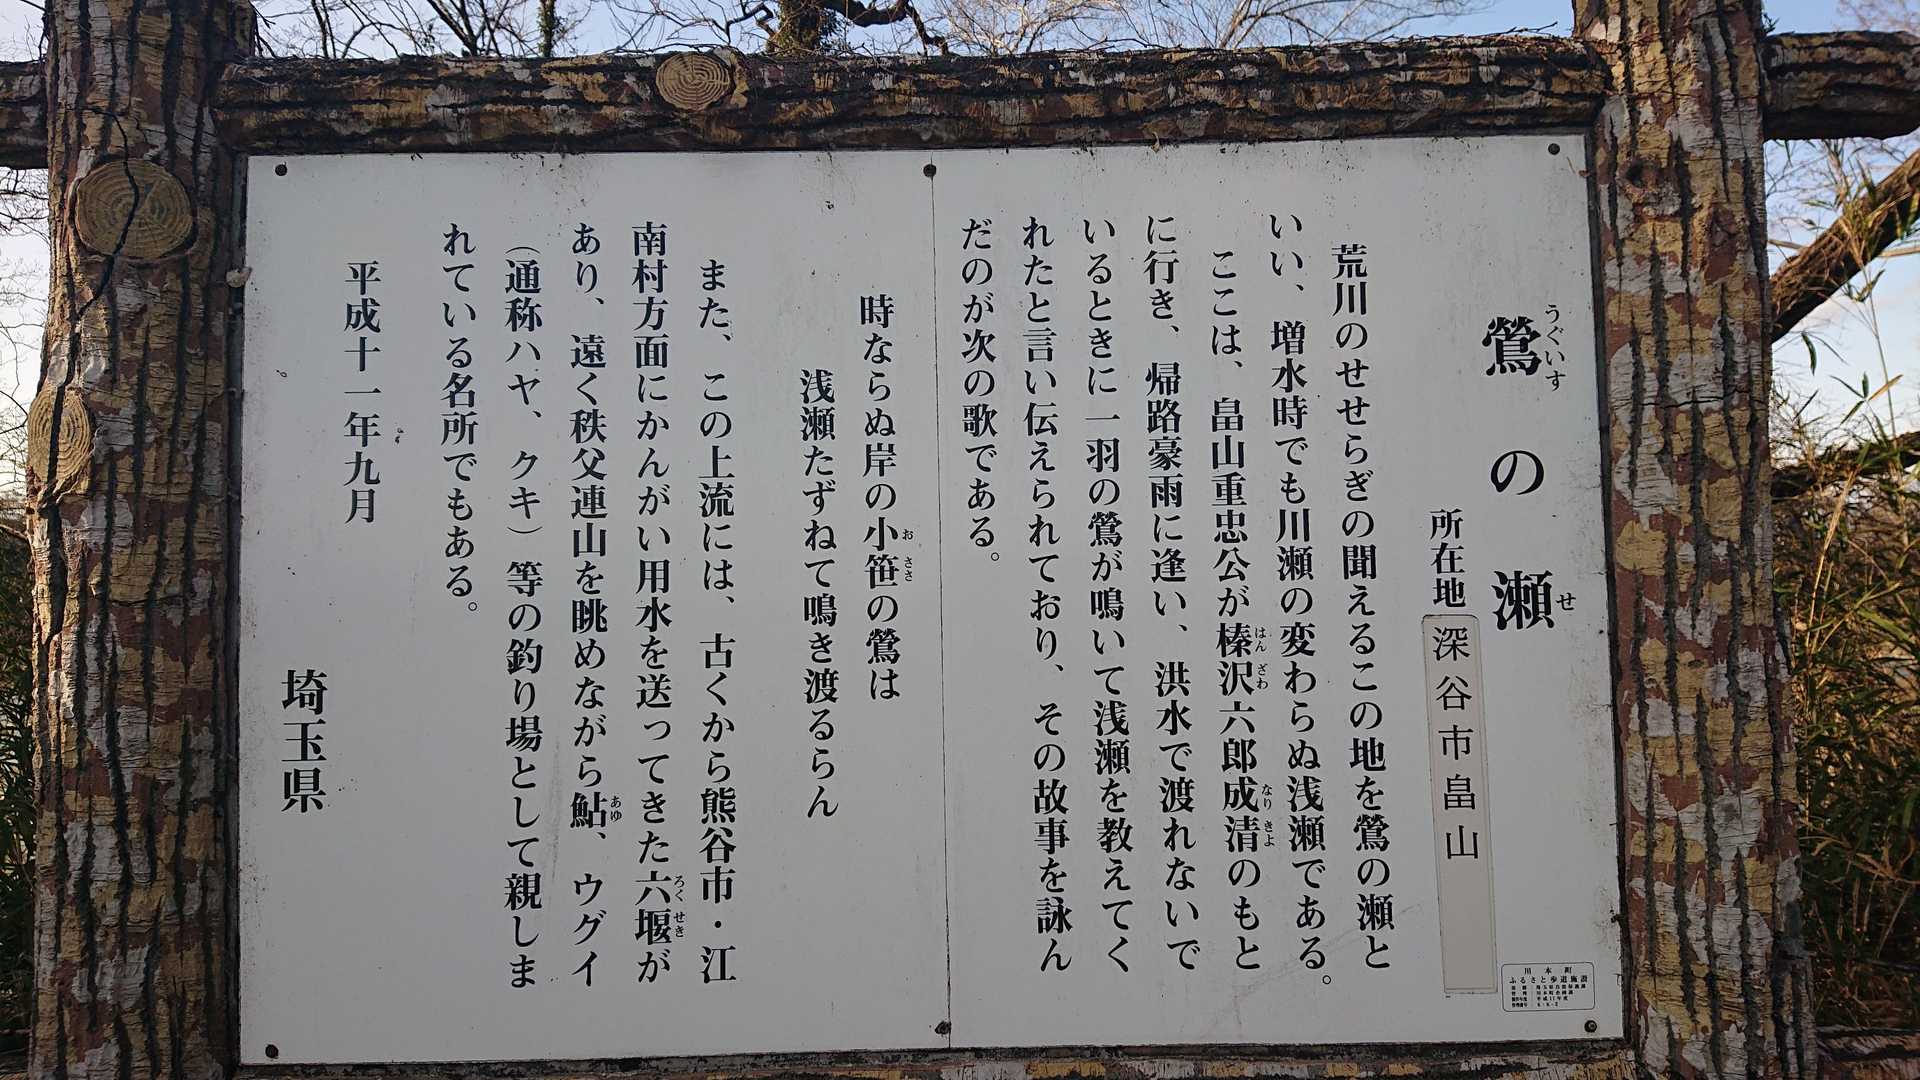 鶯の瀬
うぐいす
せ
所在地 深谷市畠山
荒川のせせらぎの聞えるこの地を鶯の瀬と
いい、増水時でも川瀬の変わらぬ浅瀬である。
ここは、畠山重忠公が榛沢六郎成清のもと
はんざわ
なりきよ
に行き、帰路豪雨に逢い、洪水で渡れないで
いるときに一羽の鶯が鳴いて浅瀬を教えてく
れたと言い伝えられており、その故事を詠ん
だのが次の歌である。
時ならぬ岸の小笹の鶯は
おささ
浅瀬たずねて鳴き渡るらん
また、この上流には、古くから熊谷市・江
南村方面にかんがい用水を送ってきた六堰が
ろくせき
あり、遠く秩父連山を眺めながら鮎、ウグイ
あゆ
(通称ハヤ、クキ)等の釣り場として親しま
れている名所でもある。
平成十一年九月
埼玉県
川本町
ふるさと歩道施設